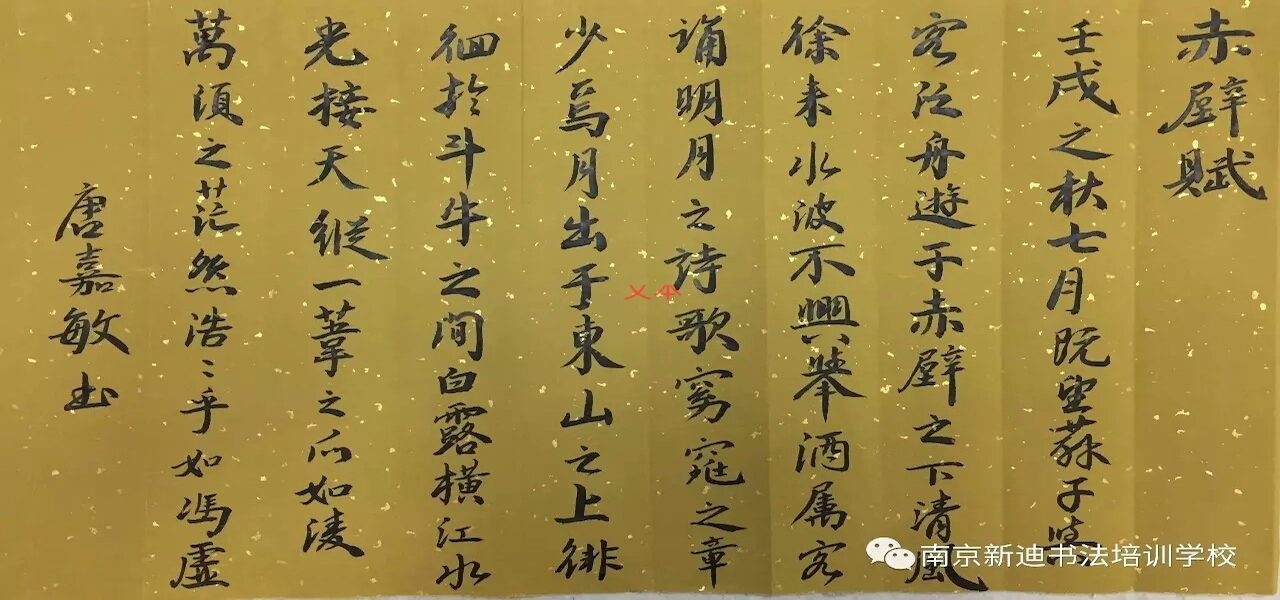 赤壁賦
壬戌之秋七月既望蘇子與
客泛舟遊于赤壁之下清風
徐来水波不興舉酒属客
誦明月之詩歌窈窕之章
少焉月出于東山之上徘
徊於斗牛之間白露横江水
光接天縱一葦之所如淩
萬頃之茫然浩〻乎如馮虛
唐嘉敏书
南京新迪书法培训学校